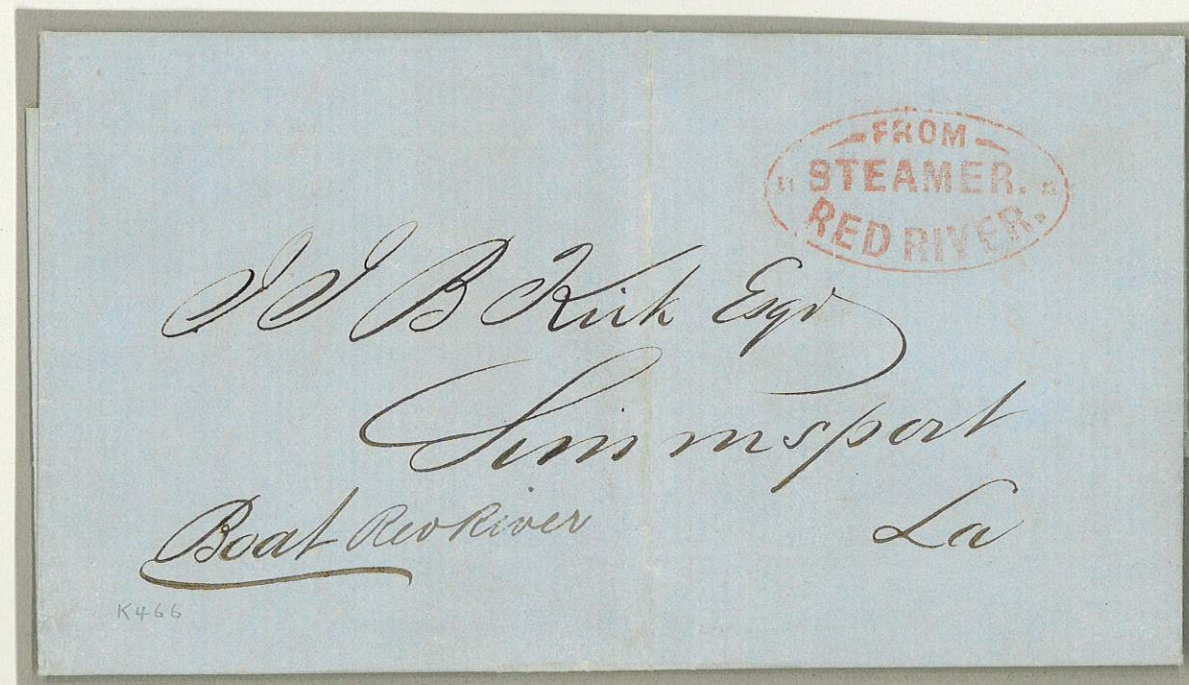 FROM
STEAMER.
RED RIVER.
J J B Kirk Esqr
Simmsport
La
Boat Red River
K466